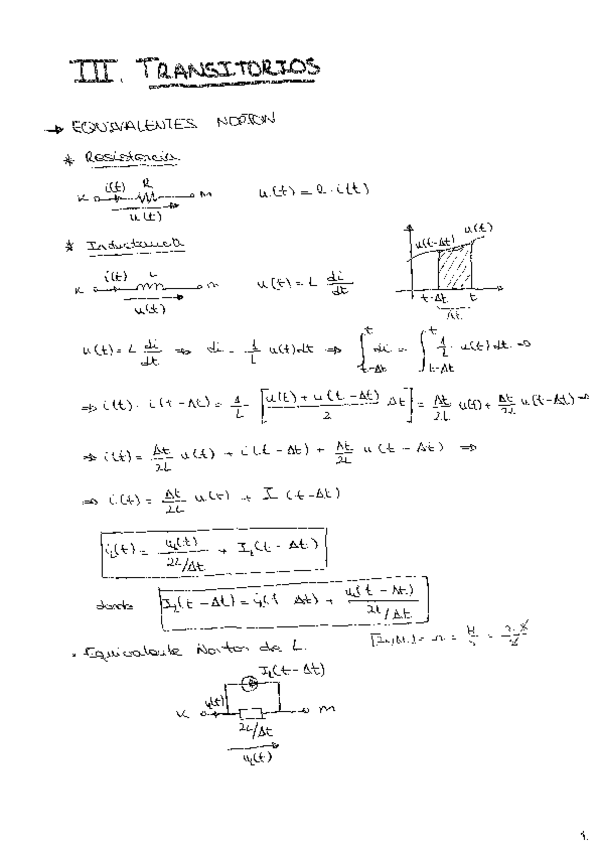 III. TRANSITORIOS
→ EQUIVALENTES NORTON
* Resistencia
i(t) R
K m u(t) = R · i(t)
u(t)
* Inductancia
u(t-Δt) u(t)
i(t) L
K m u(t) = L di/dt
t-Δt t
u(t) Δt
u(t) = L di/dt ⇒ di = 1/L u(t)dt ⇒ ∫_{t-Δt}^{t} di = ∫_{t-Δt}^{t} 1/L · u(t) dt ⇒
⇒ i(t) - i(t-Δt) = 1/L [u(t) + u(t-Δt)/2 Δt] = Δt/2L u(t) + Δt/2L u(t-Δt) ⇒
⇒ i(t) = Δt/2L u(t) + i(t-Δt) + Δt/2L u(t-Δt) ⇒
⇒ i(t) = Δt/2L u(t) + I(t-Δt)
i_L(t) = u_L(t)/2L/Δt + I_L(t-Δt)
donde I_L(t-Δt) = i_L(t Δt) + u_L(t-Δt)/2L/Δt
• Equivalente Norton de L.
I_L(t-Δt)
i_L(t)
K m
2L/Δt
u_L(t)
1.